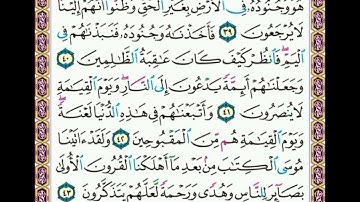 هُوَ وَجُنُودُهُۥ فِى ٱلْأَرْضِ بِغَيْرِ ٱلْحَقِّ وَظَنُّوٓا۟ أَنَّهُمْ إِلَيْنَا
لَا يُرْجَعُونَ ٣٩ فَأَخَذْنَٰهُ وَجُنُودَهُۥ فَنَبَذْنَٰهُمْ فِى
ٱلْيَمِّ فَٱنظُرْ كَيْفَ كَانَ عَٰقِبَةُ ٱلظَّٰلِمِينَ ٤٠
وَجَعَلْنَٰهُمْ أَئِمَّةً يَدْعُونَ إِلَى ٱلنَّارِ وَيَوْمَ ٱلْقِيَٰمَةِ
لَا يُنصَرُونَ ٤١ وَأَتْبَعْنَٰهُمْ فِى هَٰذِهِ ٱلدُّنْيَا لَعْنَةً
وَيَوْمَ ٱلْقِيَٰمَةِ هُم مِّنَ ٱلْمَقْبُوحِينَ ٤٢ وَلَقَدْ ءَاتَيْنَا
مُوسَى ٱلْكِتَٰبَ مِنۢ بَعْدِ مَآ أَهْلَكْنَا ٱلْقُرُونَ ٱلْأُولَىٰ
بَصَآئِرَ لِلنَّاسِ وَهُدًى وَرَحْمَةً لَّعَلَّهُمْ يَتَذَكَّرُونَ ٤٣